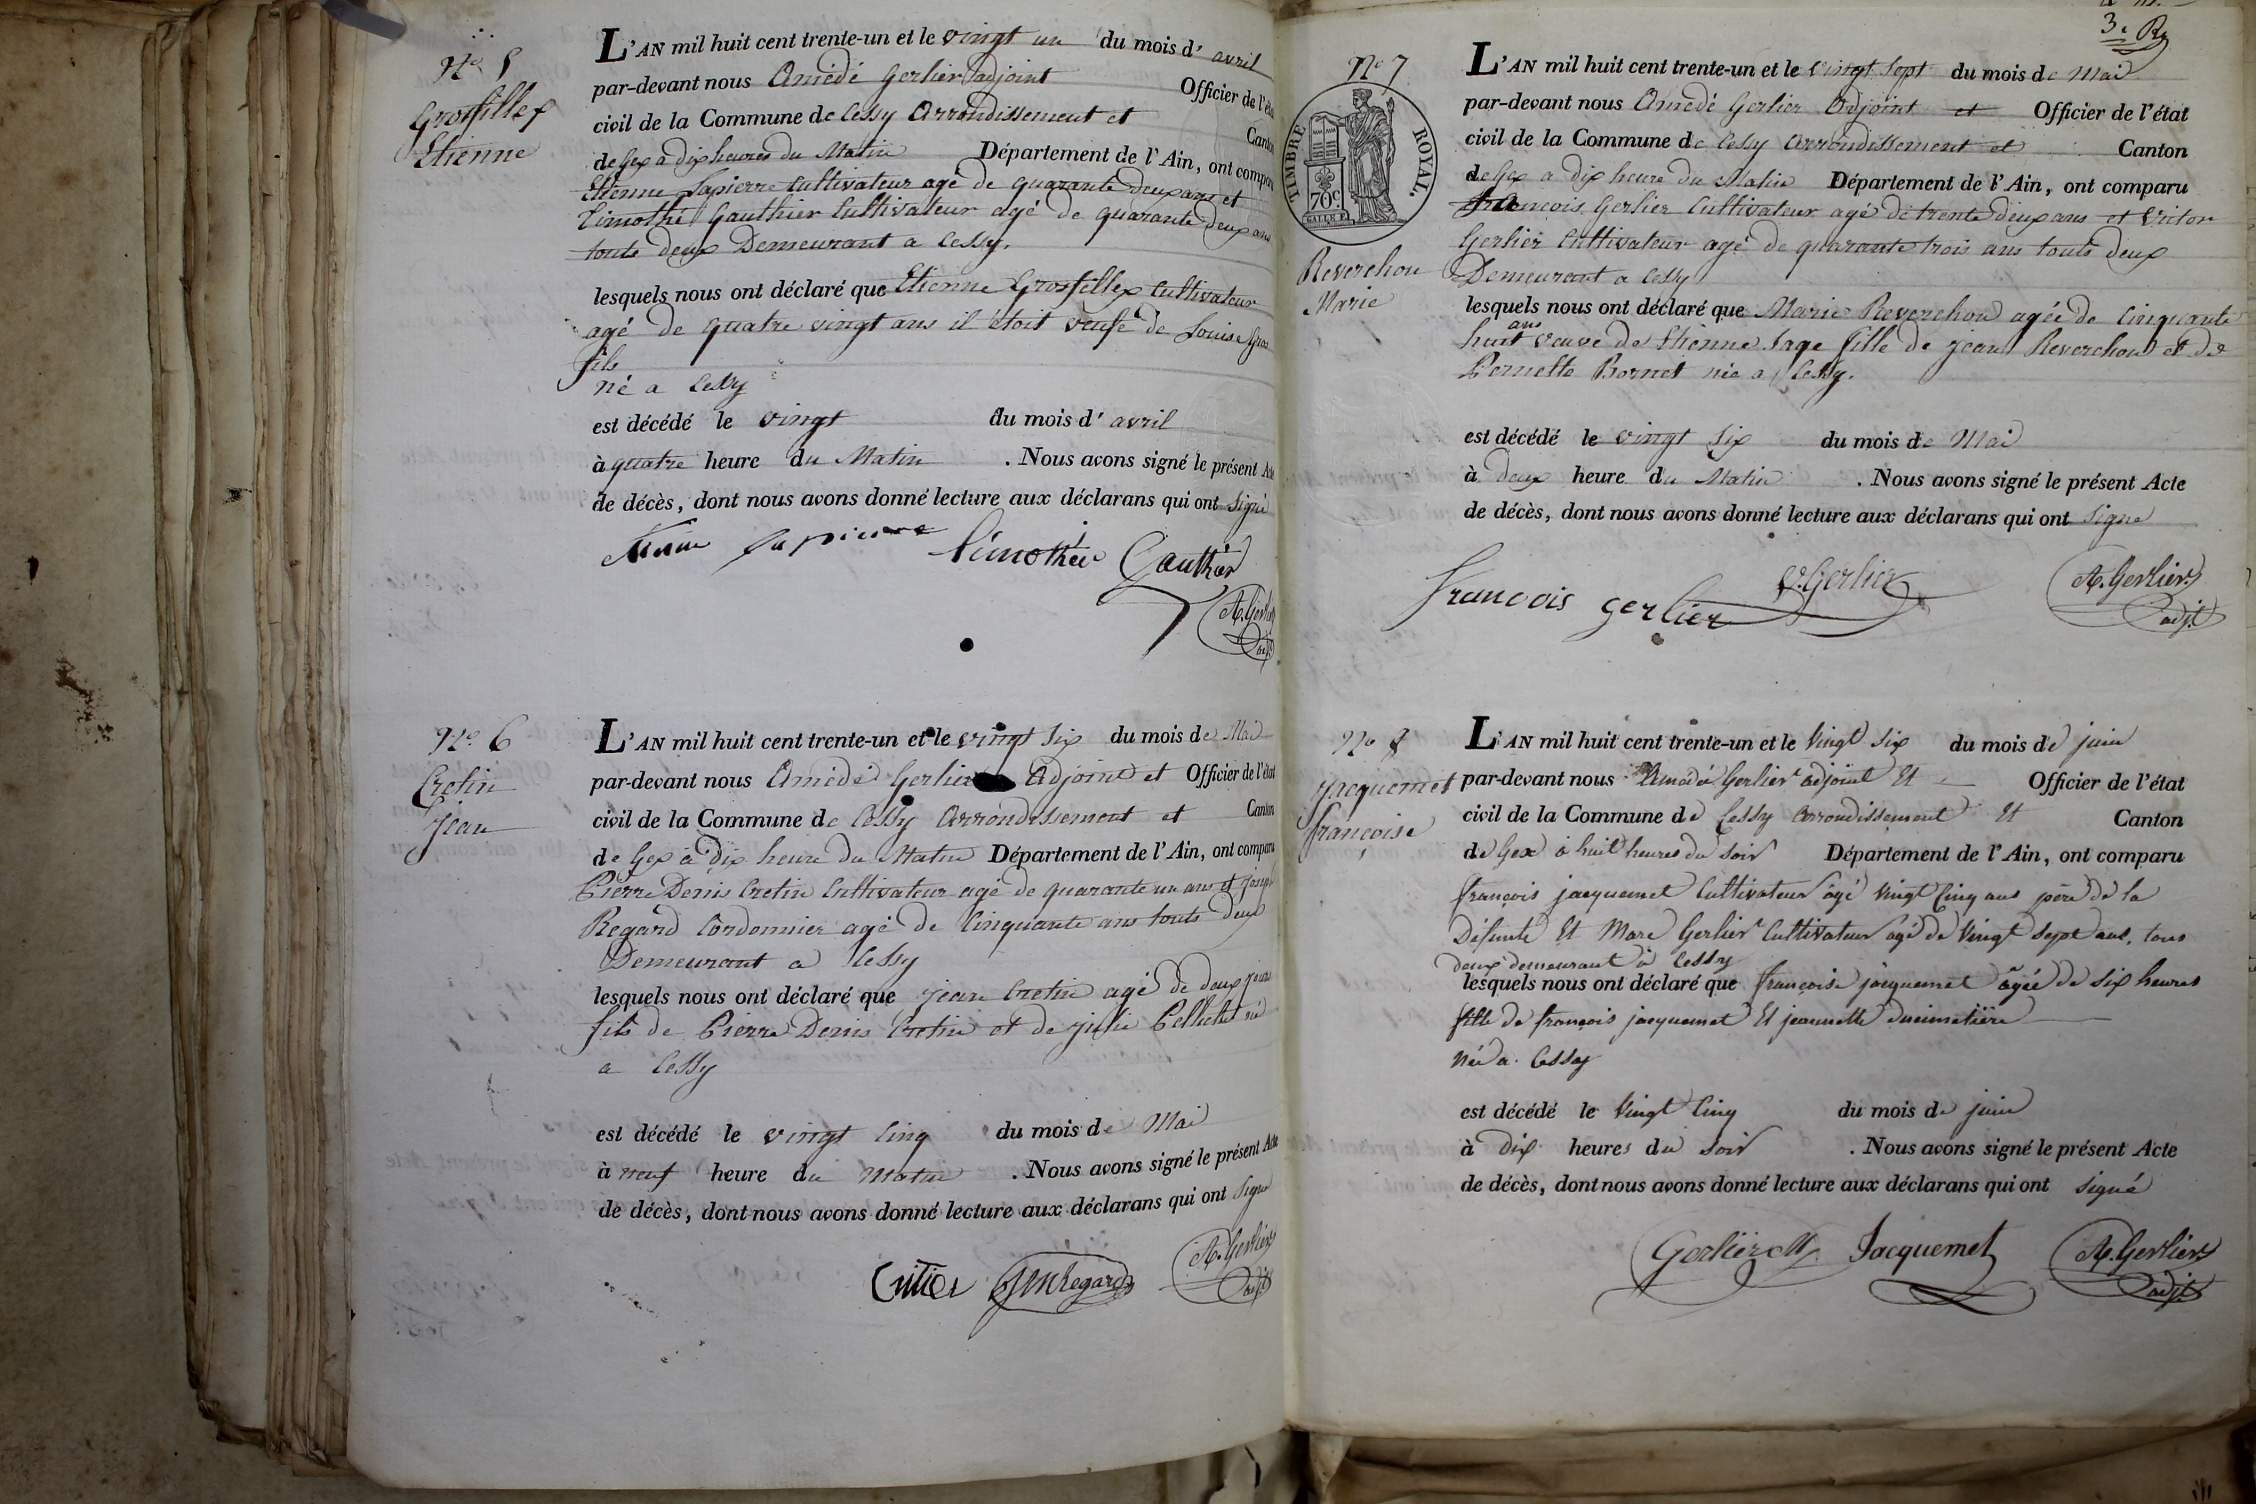 N.º 5
Grosfillex
Etienne
L'AN mil huit cent trente-un et le vingt un du mois d' avril
par-devant nous Amédé Gerlier adjoint Officier de l'éta
civil de la Commune de Cessy Arrondissement et Canton
de Gex a dix heures du Matin Département de l'Ain, ont compar
Etienne Lapierre Cultivateur agé de quarante deux ans et
Timothé Gauthier Cultivateur agé de quarante deux ans
touts deux Demeurant a Cessy.
lesquels nous ont déclaré que Etienne Grosfillex Cultivateur
agé de quatre vingt ans il étoit veufe de Louise Gros
fils
né a Cessy
est décédé le vingt du mois d' avril
à quatre heure du Matin . Nous avons signé le présent Acte
de décès, dont nous avons donné lecture aux déclarans qui ont signé
Etienne Lapierre Timothée Gauthier
A. Gerlier
adj.t
N.º 6
Cretin
Jean
L'AN mil huit cent trente-un et le vingt six du mois de Mai
par-devant nous Amédé Gerlier Adjoint et Officier de l'état
civil de la Commune de Cessy Arrondissement et Canton
de Gex à dix heure du Matin Département de l'Ain, ont comparu
Pierre Denis Cretin Cultivateur agé de quarante un ans et Josep
Regard Cordonnier agé de Cinquante ans touts deux
Demeurant a Cessy
lesquels nous ont déclaré que Jean Cretin agé de deux jours
fils de Pierre Denis Cretin et de Julie né
a Cessy
est décédé le vingt Cinq du mois de Mai
à neuf heure du Matin . Nous avons signé le présent Acte
de décès, dont nous avons donné lecture aux déclarans qui ont signé
Regard A. Gerlier
adj.t
3.e R
N.º 7
TIMBRE ROYAL.
70c.
Reverchon
Marie
L'AN mil huit cent trente-un et le vingt sept du mois de Mai
par-devant nous Amédé Gerlier Adjoint et Officier de l'état
civil de la Commune de Cessy Arrondissement et Canton
de Gex a dix heure du Matin Département de l'Ain, ont comparu
francois Gerlier Cultivateur agé de trente deux ans et Victor
Gerlier Cultivateur agé de quarante trois ans touts deux
Demeurant a Cessy
lesquels nous ont déclaré que Marie Reverchon agée de Cinquante
huit ans veuve de Etienne Sage fille de Jean Reverchon et de
Pernette Bornet née a Cessy.
est décédé le vingt six du mois de Mai
à deux heure du Matin . Nous avons signé le présent Acte
de décès, dont nous avons donné lecture aux déclarans qui ont signe
francois gerlier V. Gerlier A. Gerlier
adj.t
N.º 8
Jacquemet
françoise
L'AN mil huit cent trente-un et le Vingt six du mois de juin
par-devant nous Amédée Gerlier adjoint Et Officier de l'état
civil de la Commune de Cessy arrondissement Et Canton
de Gex à huit heures du soir Département de l'Ain, ont comparu
françois jacquemet Cultivateur âgé Vingt Cinq ans père de la
Défunte Et Marc Gerlier Cultivateur agé de Vingt sept ans, tous
deux demeurant à Cessy
lesquels nous ont déclaré que françoise jacquemet âgée de six heures
fille de françois jacquemet Et jeannette ducimetière
née a Cessy
est décédé le Vingt Cinq du mois de juin
à dix heures du soir . Nous avons signé le présent Acte
de décès, dont nous avons donné lecture aux déclarans qui ont signé
Gerlier M. Jacquemet A. Gerlier
adj.t